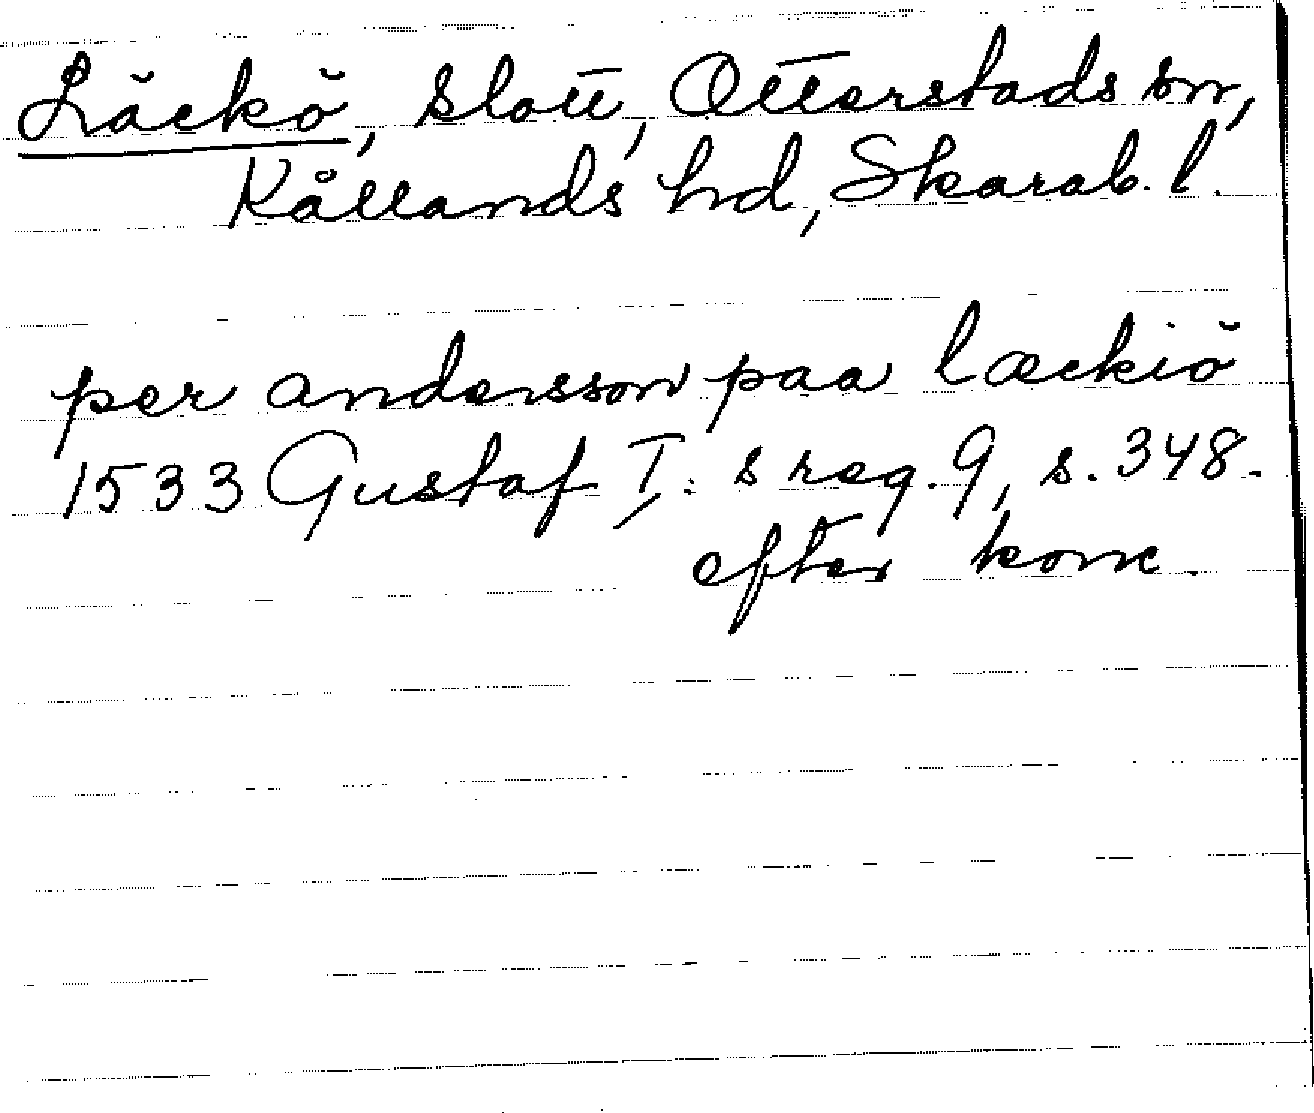 Läckö, slott, Otterstads sn,
Kållands hd, Skarab. l.
per andersson paa læckiö
1533 Gustaf I:s reg. 9, s. 348.
efter konc.